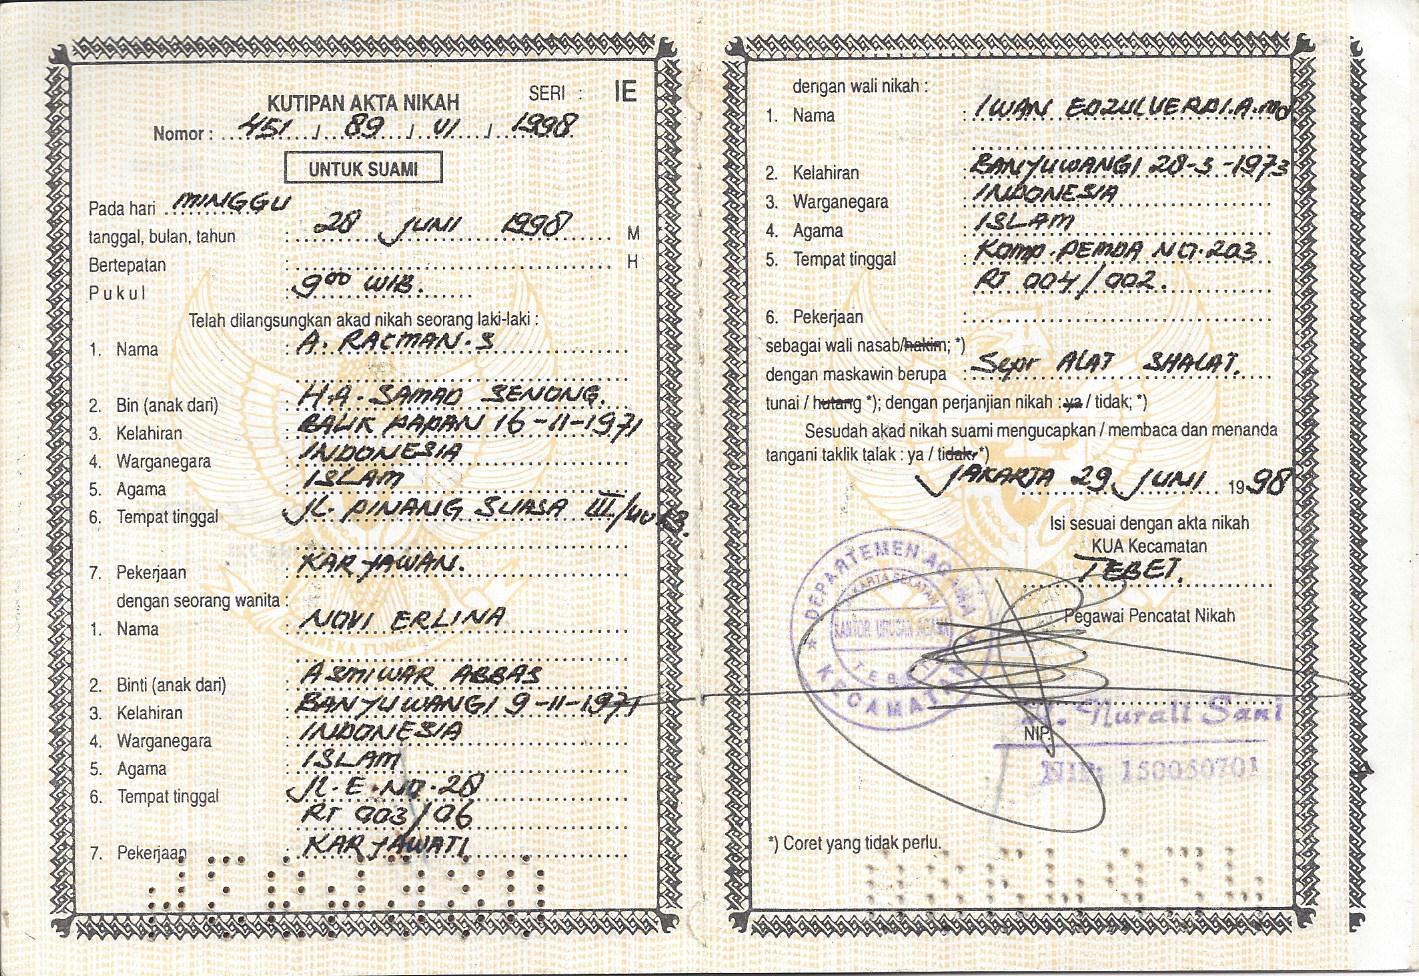 KUTIPAN AKTA NIKAH SERI : IE
Nomor : 451 / 89 / VI / 1998
UNTUK SUAMI
Pada hari MINGGU
tanggal, bulan, tahun : 28 JUNI 1998 M
Bertepatan : H
Pukul : 9⁰⁰ WIB.
Telah dilangsungkan akad nikah seorang laki-laki :
1. Nama : A. RACMAN.S
2. Bin (anak dari) : H.A. SAMAD SENONG.
3. Kelahiran : BALIK PAPAN 16-11-1971
4. Warganegara : INDONESIA
5. Agama : ISLAM
6. Tempat tinggal : JL. PINANG SUASA III/
7. Pekerjaan : KARYAWAN.
dengan seorang wanita :
1. Nama : NOVI ERLINA
2. Binti (anak dari) : ASMIWAR ABBAS
3. Kelahiran : BANYUWANGI 9-11-1971
4. Warganegara : INDONESIA
5. Agama : ISLAM
6. Tempat tinggal : JL. E. NO. 28
RT 003/06
7. Pekerjaan : KARYAWATI
dengan wali nikah :
1. Nama : IWAN EDZULVERDI.A.md
2. Kelahiran : BANYUWANGI 28-3-1973
3. Warganegara : INDONESIA
4. Agama : ISLAM
5. Tempat tinggal : KOMP. PEMDA NO. 203
RT 004/002.
6. Pekerjaan :
sebagai wali nasab/hakim; *)
dengan maskawin berupa : Sepr ALAT SHALAT.
tunai / hutang *); dengan perjanjian nikah : ya / tidak; *)
Sesudah akad nikah suami mengucapkan / membaca dan menanda
tangani taklik talak : ya / tidak. *)
JAKARTA 29 JUNI 1998
Isi sesuai dengan akta nikah
KUA Kecamatan
TEBET.
Pegawai Pencatat Nikah
DEPARTEMEN AGAMA
JAKARTA SELATAN
KANTOR URUSAN AGAMA
TEBET
KECAMATAN
Nurali Sani
NIP.
NIP: 150050701
*) Coret yang tidak perlu.